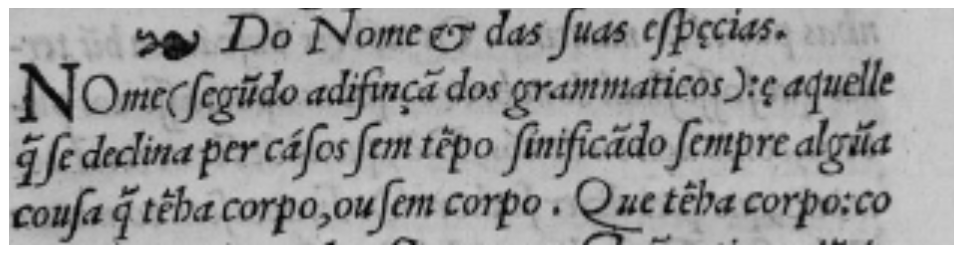 ❧ Do Nome & das ſuas eſpęcias.
NOme (ſegũdo adifinçã dos grammaticos):ę aquelle
q̃ ſe declina per cáſos ſem tẽpo ſinificãdo ſempre algũa
couſa q̃ tẽha corpo,ou ſem corpo. Que tẽha corpo:co